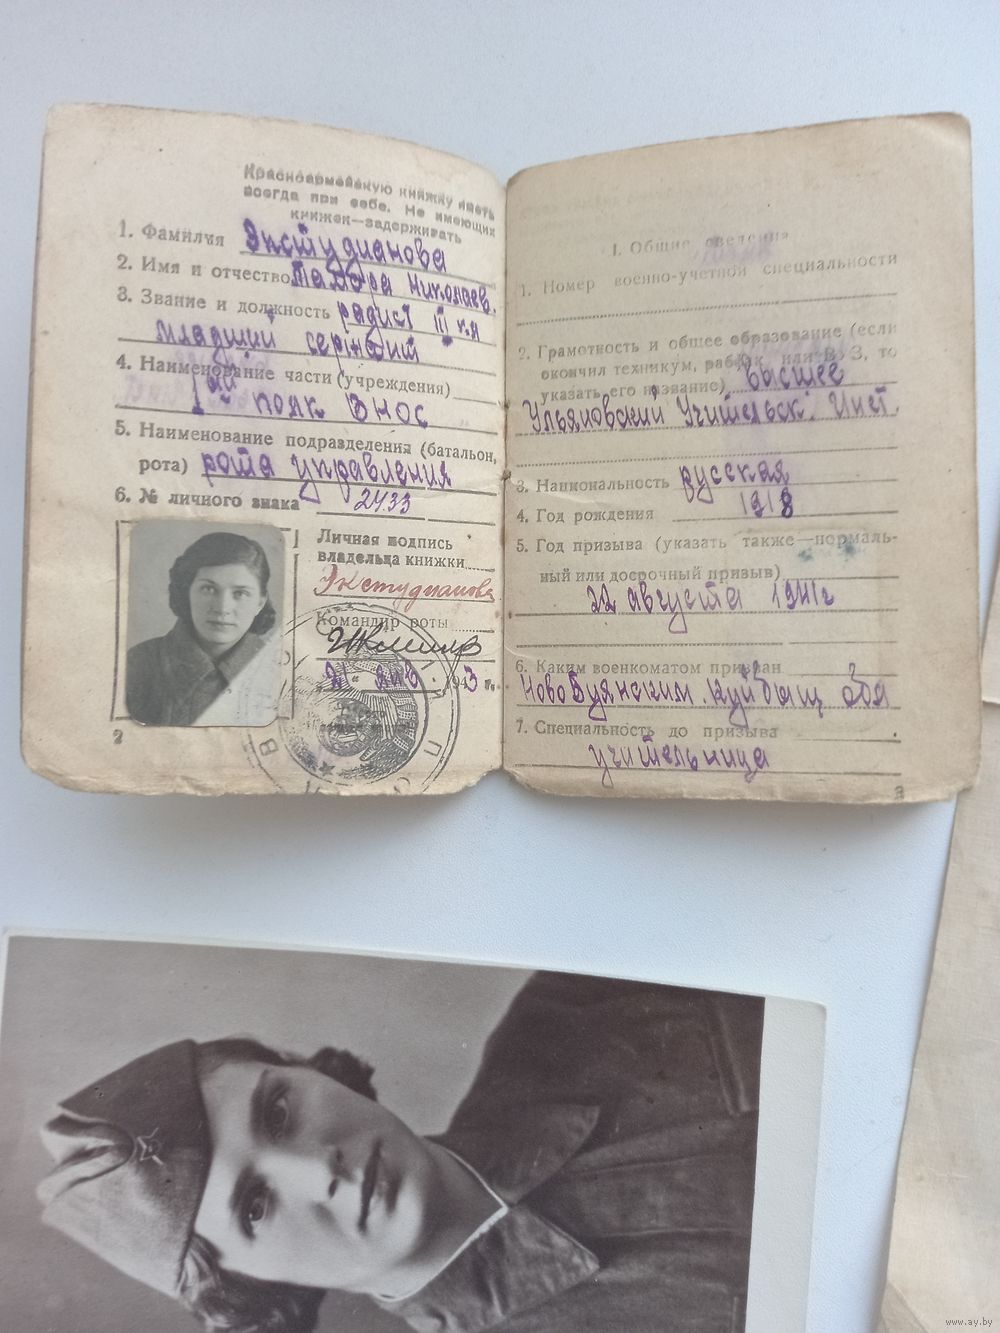 Красноармейскую книжку иметь
всегда при себе. Не имеющих
книжек—задерживать
1. Фамилия Экстудианова
2. Имя и отчество Тамара Николаев.
3. Звание и должность радист III кл
младший сержант
4. Наименование части (учреждения)
1ый полк ВНОС
5. Наименование подразделения (батальон,
рота) рота управления
6. № личного знака 2433
Личная подпись
владельца книжки
Экстудианова
Командир роты
"21" янв 1943 г.
2
I. Общие сведения
1. Номер военно-учетной специальности
2. Грамотность и общее образование (если
окончил техникум, рабфак или ВУЗ, то
указать его название) высшее
Ульяновский Учительск. Инст.
3. Национальность русская
4. Год рождения 1918
5. Год призыва (указать также—нормаль-
ный или досрочный призыв)
22 августа 1941г
6. Каким военкоматом призван
Ново Буянским. Куйбыш обл
7. Специальность до призыва
учительница
3
www.ay.by